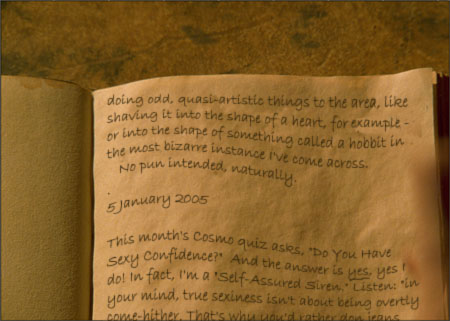 doing odd, quasi-artistic things to the area, like
shaving it into the shape of a heart, for example -
or into the shape of something called a hobbit in
the most bizarre instance I've come across.
No pun intended, naturally.
.
5 January 2005
This month's Cosmo quiz asks, "Do You Have
Sexy Confidence?" And the answer is yes, yes I
do! In fact, I'm a "Self-Assured Siren." Listen: "In
your mind, true sexiness isn't about being overtly
come-hither. That's why you'd rather don jeans